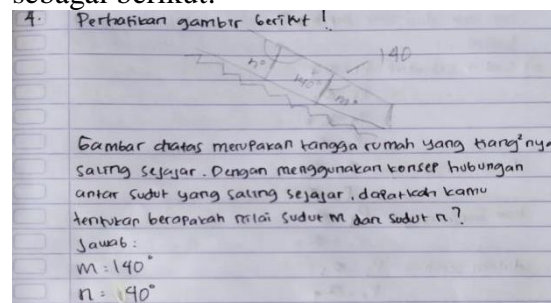 sebagai berikut:
4. Perhatikan gambir berikut !
140
n°
140°
m°
Gambar diatas merupakan tangga rumah yang tiang²nya
saling sejajar. Dengan menggunakan konsep hubungan
antar sudut yang saling sejajar, dapatkah kamu
tentukan berapakah nilai sudut m dan sudut n?
Jawab :
m = 140°
n = 140°